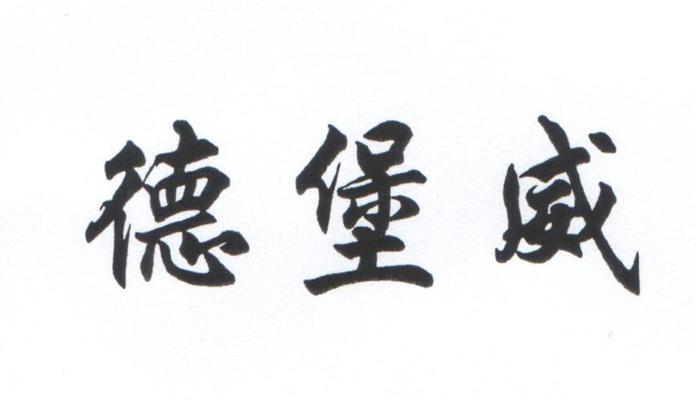 德堡威